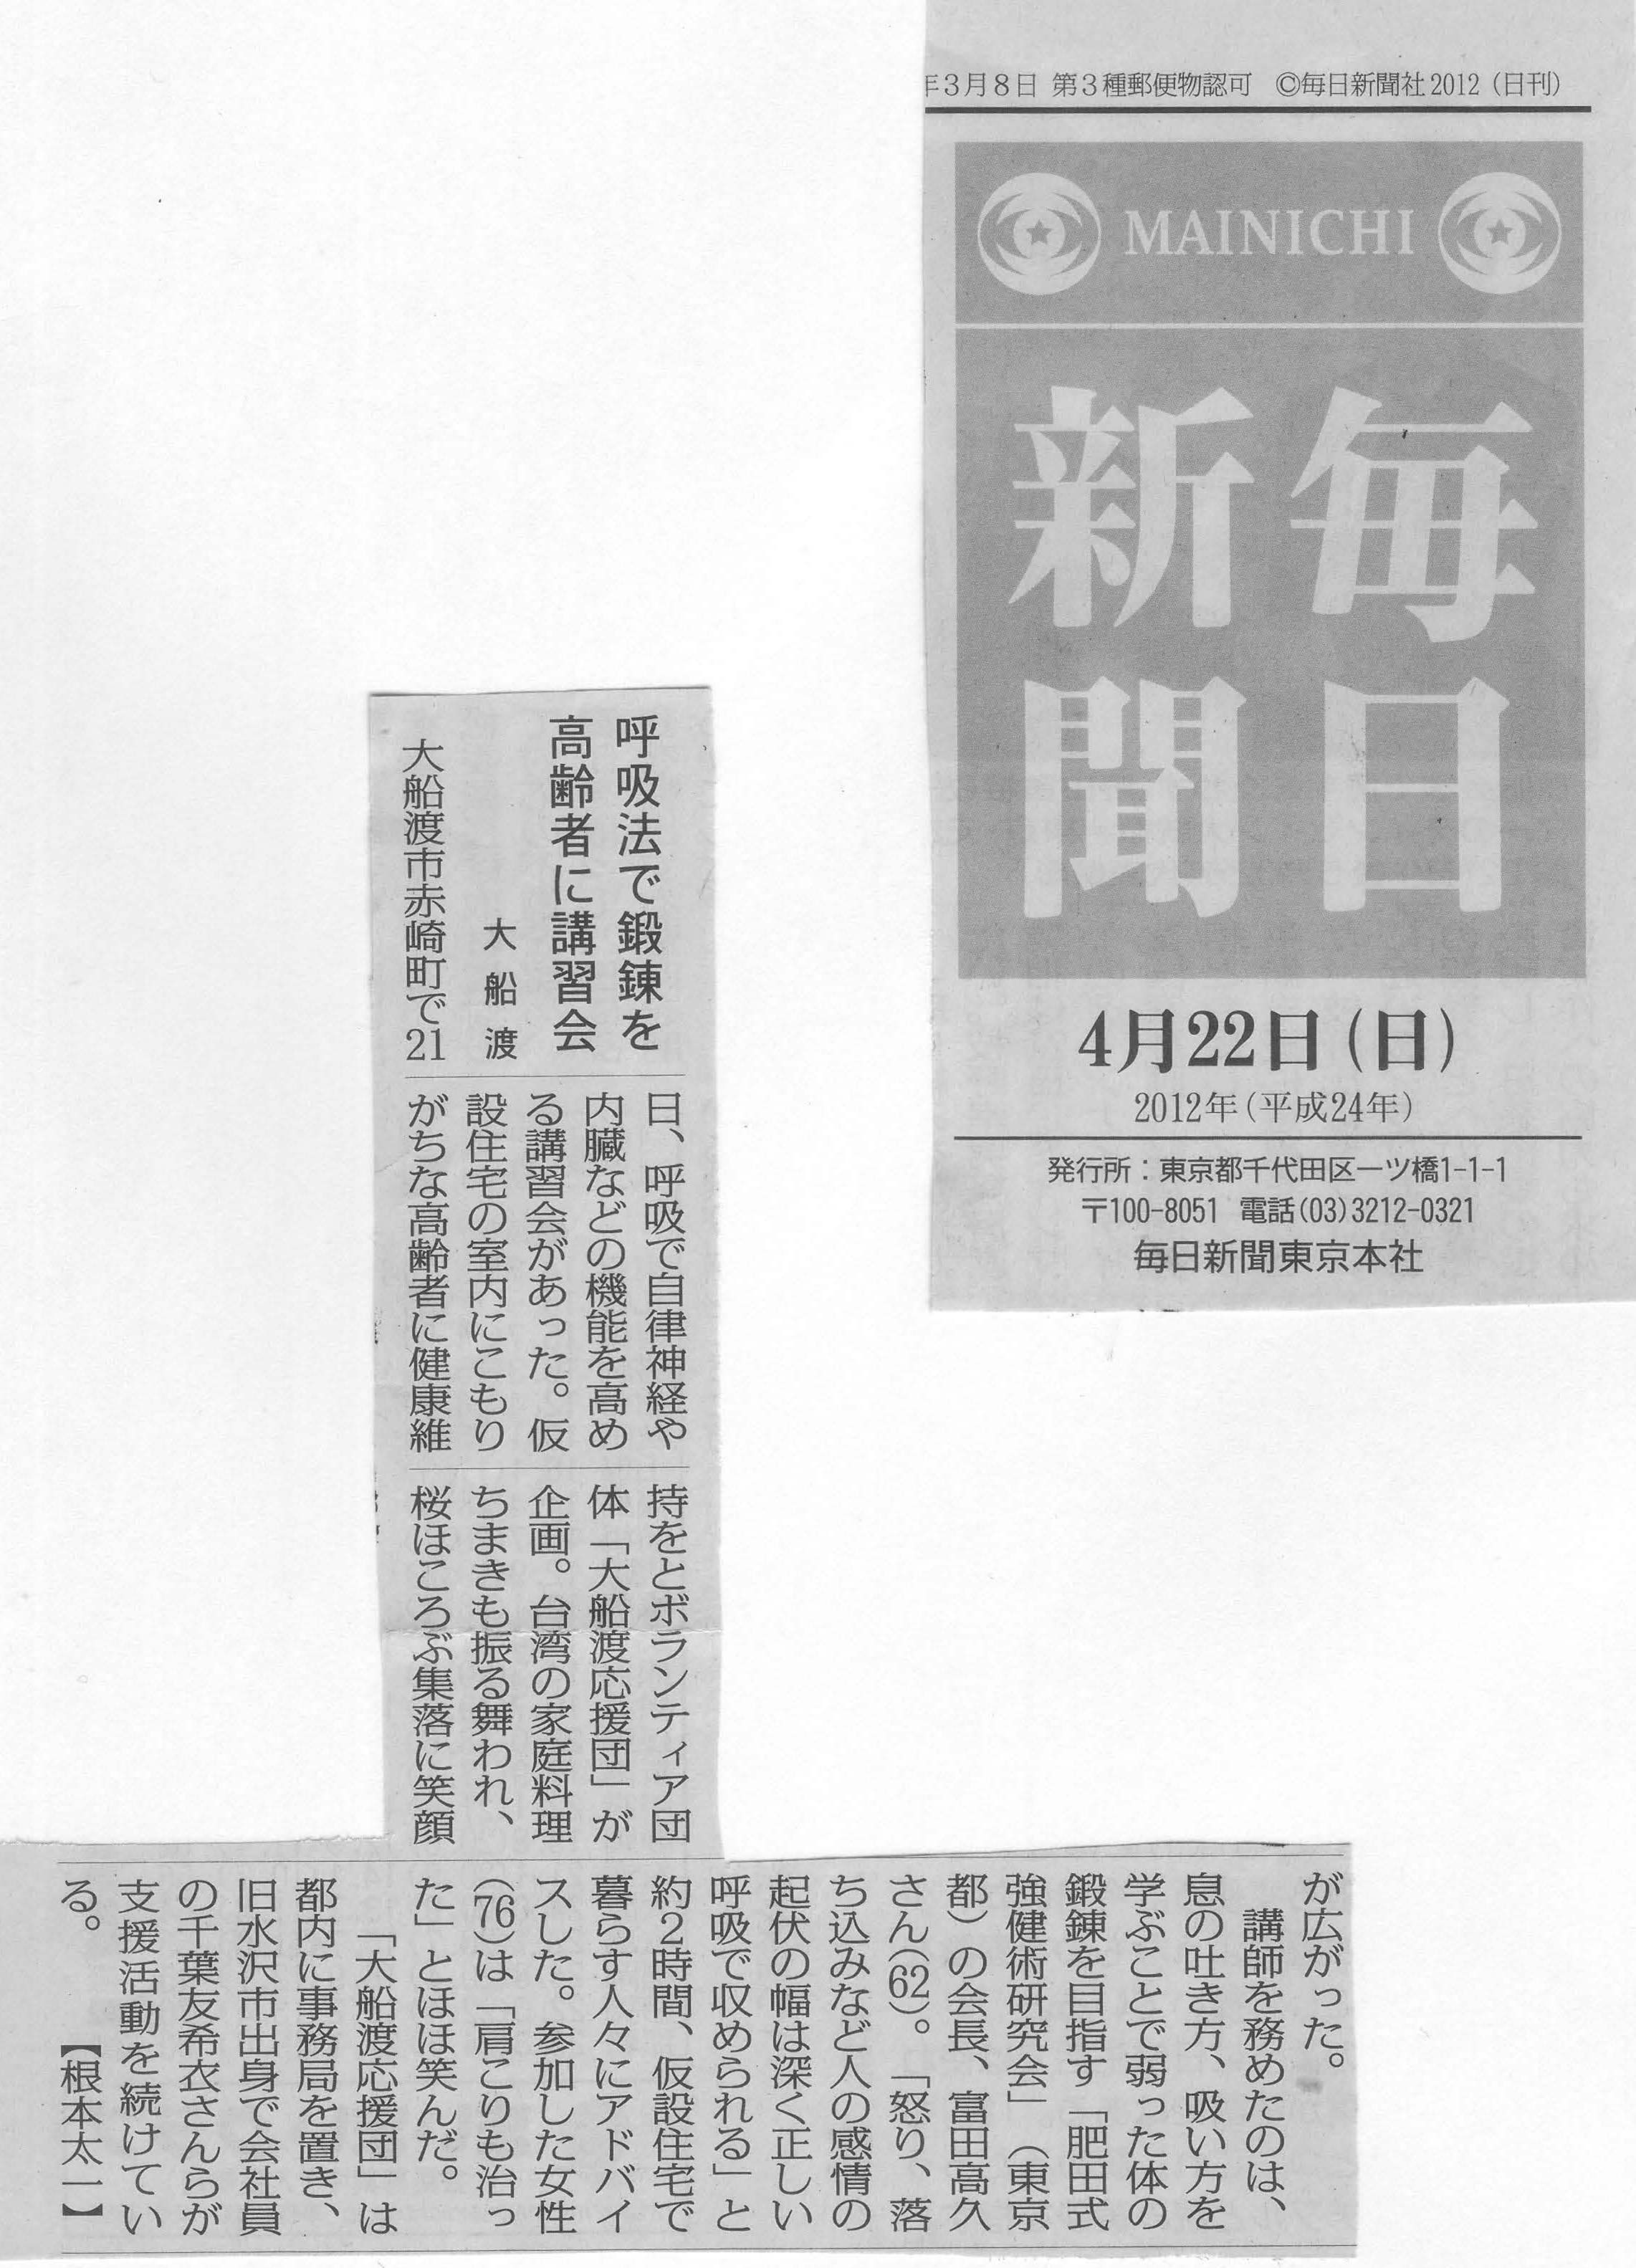 年3月8日 第3種郵便物認可 ©毎日新聞社2012（日刊）
MAINICHI
毎日
新聞
4月22日（日）
2012年（平成24年）
発行所：東京都千代田区一ツ橋1-1-1
〒100-8051 電話（03）3212-0321
毎日新聞東京本社
呼吸法で鍛錬を
高齢者に講習会
大船渡
大船渡市赤崎町で21
日、呼吸で自律神経や
内臓などの機能を高め
る講習会があった。仮
設住宅の室内にこもり
がちな高齢者に健康維
持をとボランティア団
体「大船渡応援団」が
企画。台湾の家庭料理
ちまきも振る舞われ、
桜ほころぶ集落に笑顔
が広がった。
講師を務めたのは、
息の吐き方、吸い方を
学ぶことで弱った体の
鍛錬を目指す「肥田式
強健術研究会」（東京
都）の会長、富田高久
さん（62）。「怒り、落
ち込みなど人の感情の
起伏の幅は深く正しい
呼吸で収められる」と
約2時間、仮設住宅で
暮らす人々にアドバイ
スした。参加した女性
（76）は「肩こりも治っ
た」とほほ笑んだ。
「大船渡応援団」は
都内に事務局を置き、
旧水沢市出身で会社員
の千葉友希衣さんらが
支援活動を続けてい
る。【根本太一】